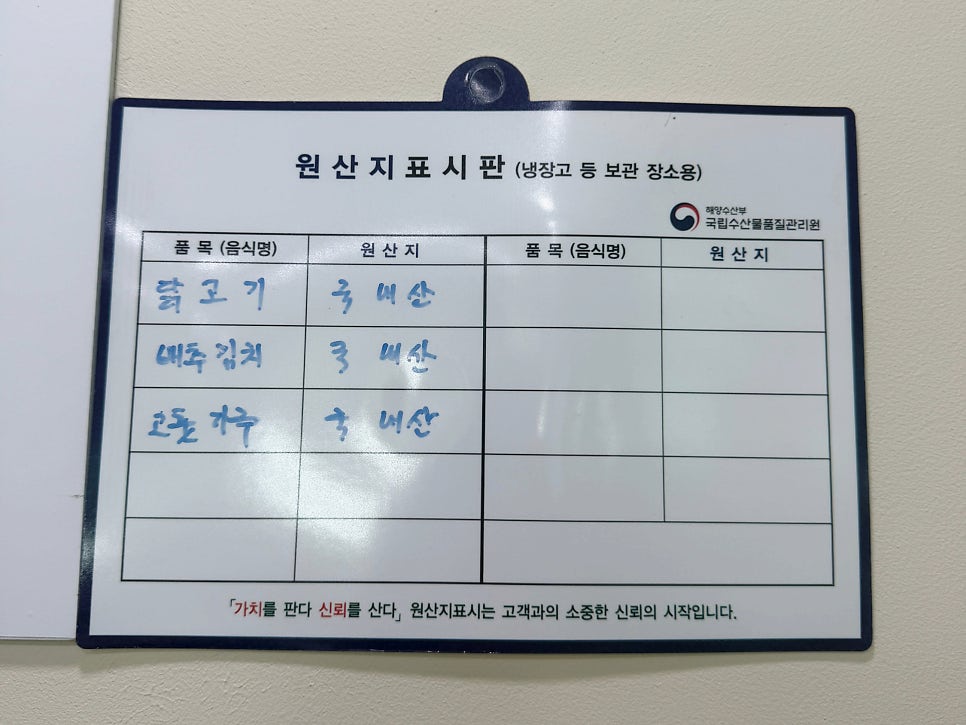 원산지표시판 (냉장고 등 보관 장소용)
해양수산부
국립수산물품질관리원
품 목 (음식명) 원 산 지 품 목 (음식명) 원 산 지
닭고기 국내산
배추김치 국내산
고춧가루 국내산
「가치를 판다 신뢰를 산다」 원산지표시는 고객과의 소중한 신뢰의 시작입니다.